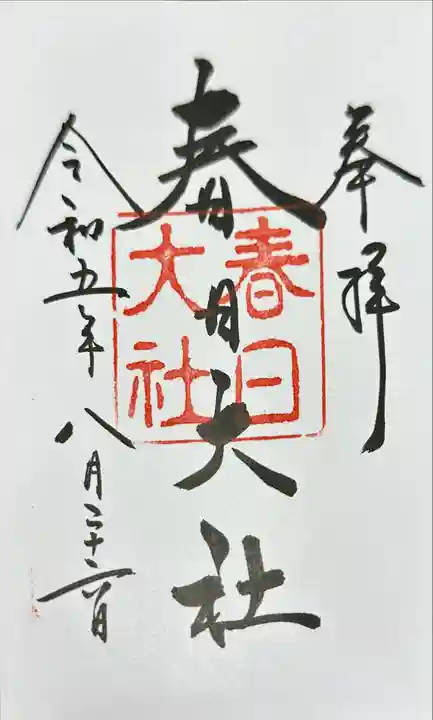 奉拝
春日大社
春日
大社
令和五年八月二十六日